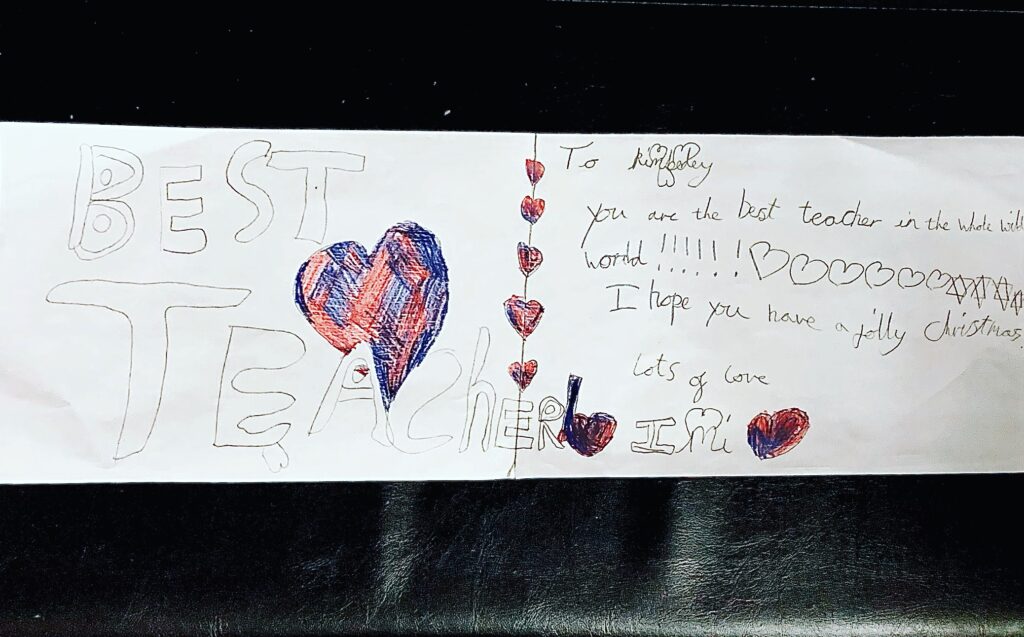 BEST
TEAChER!
To kimberley
you are the best teacher in the whole wild
world !!!!!! !
I hope you have a jolly Christmas.
Lots of love
IMi